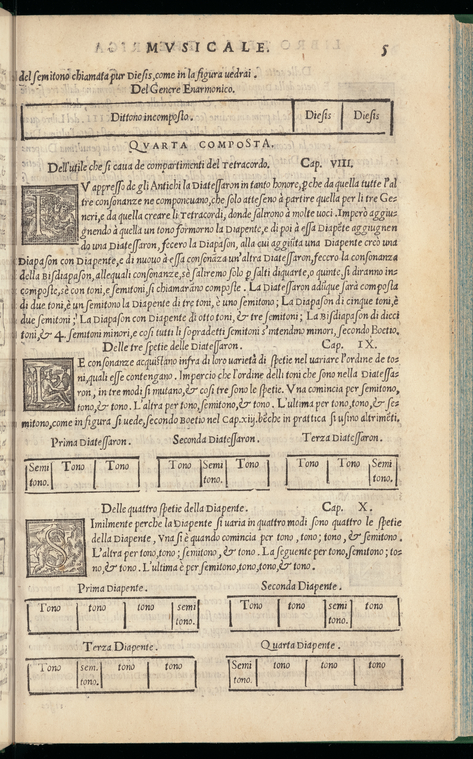 MVSICALE. 5
del semitono chiamata pur Diesis, come in la figura uedrai.
Del Genere Enarmonico.
Dittono incomposto. Diesis Diesis
QVARTA COMPOSTA.
Dell'utile che si caua de compartimenti del Tetracordo. Cap. VIII.
V appresso de gli Antichi la Diatessaron in tanto honore, ꝑche da quella tutte l'al
tre consonanze ne componeuano, che solo atteseno à partire quella per li tre Ge-
neri, e da quella creare li Tetracordi, donde salirono à molte uoci. Imperò aggiu-
gnendo à quella un tono formorno la Diapente, e di poi à essa Diapẽte aggiugnen
do una Diatessaron, fecero la Diapason, alla cui aggiũta una Diapente creò una
Diapason con Diapente, e di nuouo à essa consonãza un'altra Diatessaron, fecero la consonanza
della Bisdiapason, allequali consonanze, sè saliremo solo ꝑ salti di quarte, o quinte, si diranno in-
composte, sè con toni, e semitoni, si chiamarãno composte. La Diatessaron adũque sarà composta
di due toni, è un semitono la Diapente di tre toni, è uno semitono; La Diapason di cinque toni, è
due semitoni; La Diapason con Diapente di otto toni, & tre semitoni; La Bisdiapason di dieci
toni, & 4. semitoni minori, e cosi tutti li sopradetti semitoni s'intendino minori, secondo Boetio.
Delle tre spetie delle Diatessaron. Cap. IX.
LE consonanze acquistano infra di loro varietà di spetie nel uariare l'ordine de to-
ni, quali esse contengano. Impercio che l'ordine delli toni che sono nella Diatessa-
ron, in tre modi si mutano, & cosi tre sono le spetie. Vna comincia per semitono,
tono, & tono. L'altra per tono, semitono, & tono. L'ultima per tono, tono, & se-
mitono, come in figura si uede, secondo Boetio nel Cap. xiij. bẽche in prattica si usino altrimẽti.
Prima Diatessaron. Seconda Diatessaron. Terza Diatessaron.
Semi tono. Tono Tono Tono Semi tono. Tono Tono Tono Semi tono.
Delle quattro spetie della Diapente. Cap. X.
SImilmente perche la Diapente si uaria in quattro modi sono quattro le spetie
della Diapente, Vna si è quando comincia per tono, tono; tono, & semitono.
L'altra per tono, tono; semitono, & tono. La seguente per tono, semitono; to-
no, & tono. L'ultima è per semitono, tono, tono, & tono.
Prima Diapente. Seconda Diapente.
Tono tono tono semi tono. Tono tono semi tono. tono
Terza Diapente. Quarta Diapente.
Tono sem. tono. tono tono Semi tono. tono tono tono